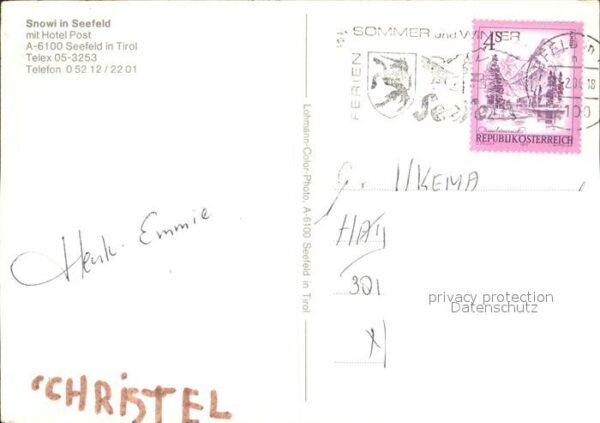 Snowi in Seefeld
mit Hotel Post
A-6100 Seefeld in Tirol
Telex 05-3253
Telefon 0 52 12 / 22 01
FERIEN
SOMMER und WINTER
Seefeld
4S
REPUBLIK ÖSTERREICH
Lohmann-Color-Photo, A-6100 Seefeld in Tirol
G. IJKEMA
301
privacy protection
Datenschutz
Henk. Emmie
CHRISTEL